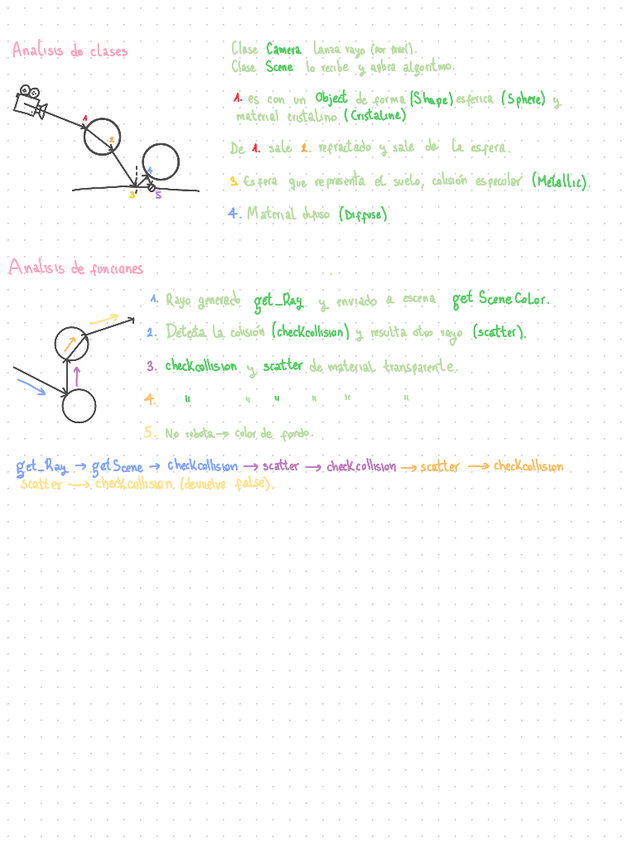 Analisis de clases
Clase Camera lanza rayo (por pixel).
Clase Scene lo recibe y aplica algoritmo.
1. es con un Object de forma (Shape) esferica (Sphere) y
material cristalino (Cristaline)
De 1. sale 2. refractado y sale de la esfera.
3. Esfera que representa el suelo, colisión especular (Metallic).
4. Material difuso (Diffuse)
1
2
3
4
5
Analisis de funciones
1. Rayo generado get_Ray y enviado a escena get SceneColor.
2. Detecta la colisión (checkcollision) y resulta otro rayo (scatter).
3. checkcollision y scatter de material transparente.
4. " " " " " "
5. No rebota → color de fondo.
get_Ray → getScene → checkcollision → scatter → checkcollision → scatter → checkcollision
scatter → checkcollision (devuelve false).